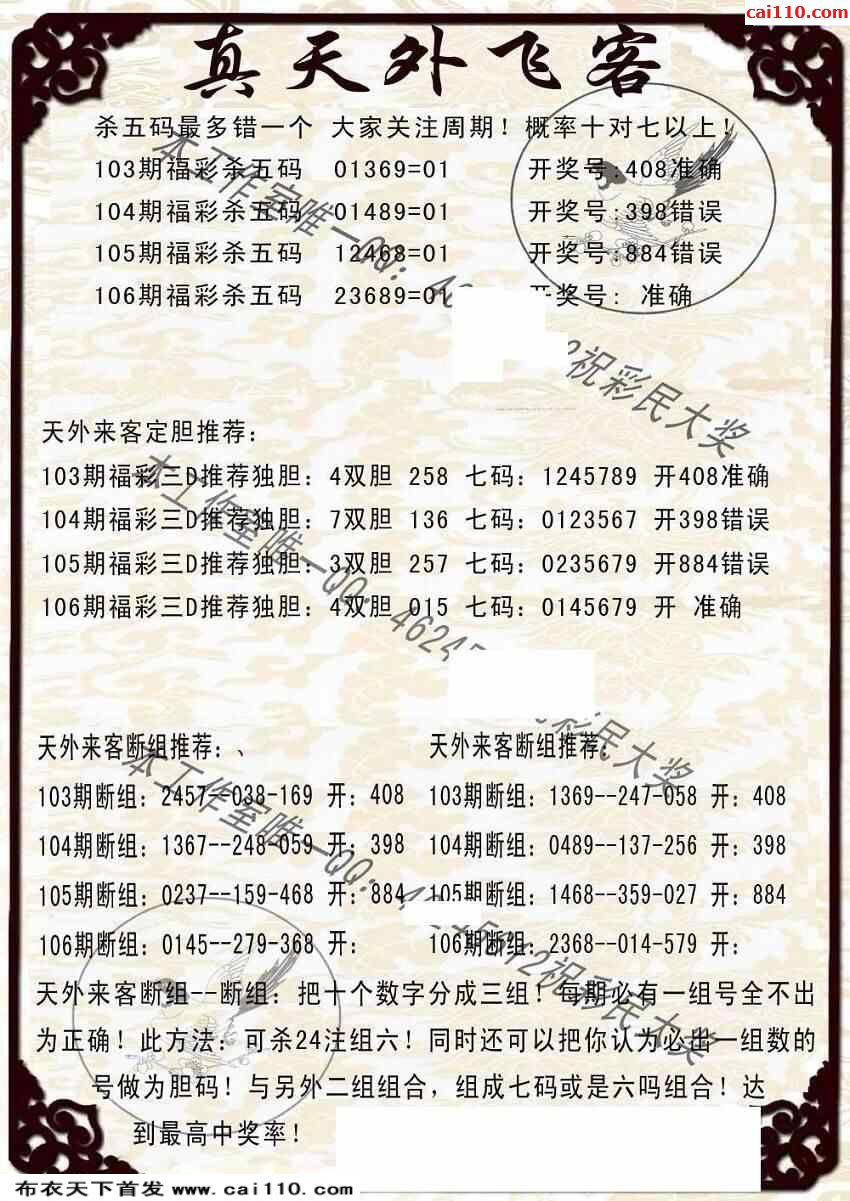 cai110.com
真天外飞客
杀五码最多错一个 大家关注周期！概率十对七以上！
103期福彩杀五码 01369=01 开奖号:408准确
104期福彩杀五码 01489=01 开奖号:398错误
105期福彩杀五码 12468=01 开奖号:884错误
106期福彩杀五码 23689=01 开奖号: 准确
天外来客定胆推荐：
103期福彩三D推荐独胆：4双胆 258 七码：1245789 开408准确
104期福彩三D推荐独胆：7双胆 136 七码：0123567 开398错误
105期福彩三D推荐独胆：3双胆 257 七码：0235679 开884错误
106期福彩三D推荐独胆：4双胆 015 七码：0145679 开 准确
天外来客断组推荐：、 天外来客断组推荐：
103期断组：2457--038-169 开：408 103期断组：1369--247-058 开：408
104期断组：1367--248-059 开：398 104期断组：0489--137-256 开：398
105期断组：0237--159-468 开：884 105期断组：1468--359-027 开：884
106期断组：0145--279-368 开： 106期断组：2368--014-579 开：
天外来客断组--断组：把十个数字分成三组！每期必有一组号全不出
为正确！此方法：可杀24注组六！同时还可以把你认为必出一组数的
号做为胆码！与另外二组组合，组成七码或是六吗组合！达
到最高中奖率！
本工作室唯一QQ：46 祝彩民大奖
本工作室唯一QQ：4624 彩民大奖
本工作室唯一QQ：4 祝彩民大奖
布衣天下首发 www.cai110.com